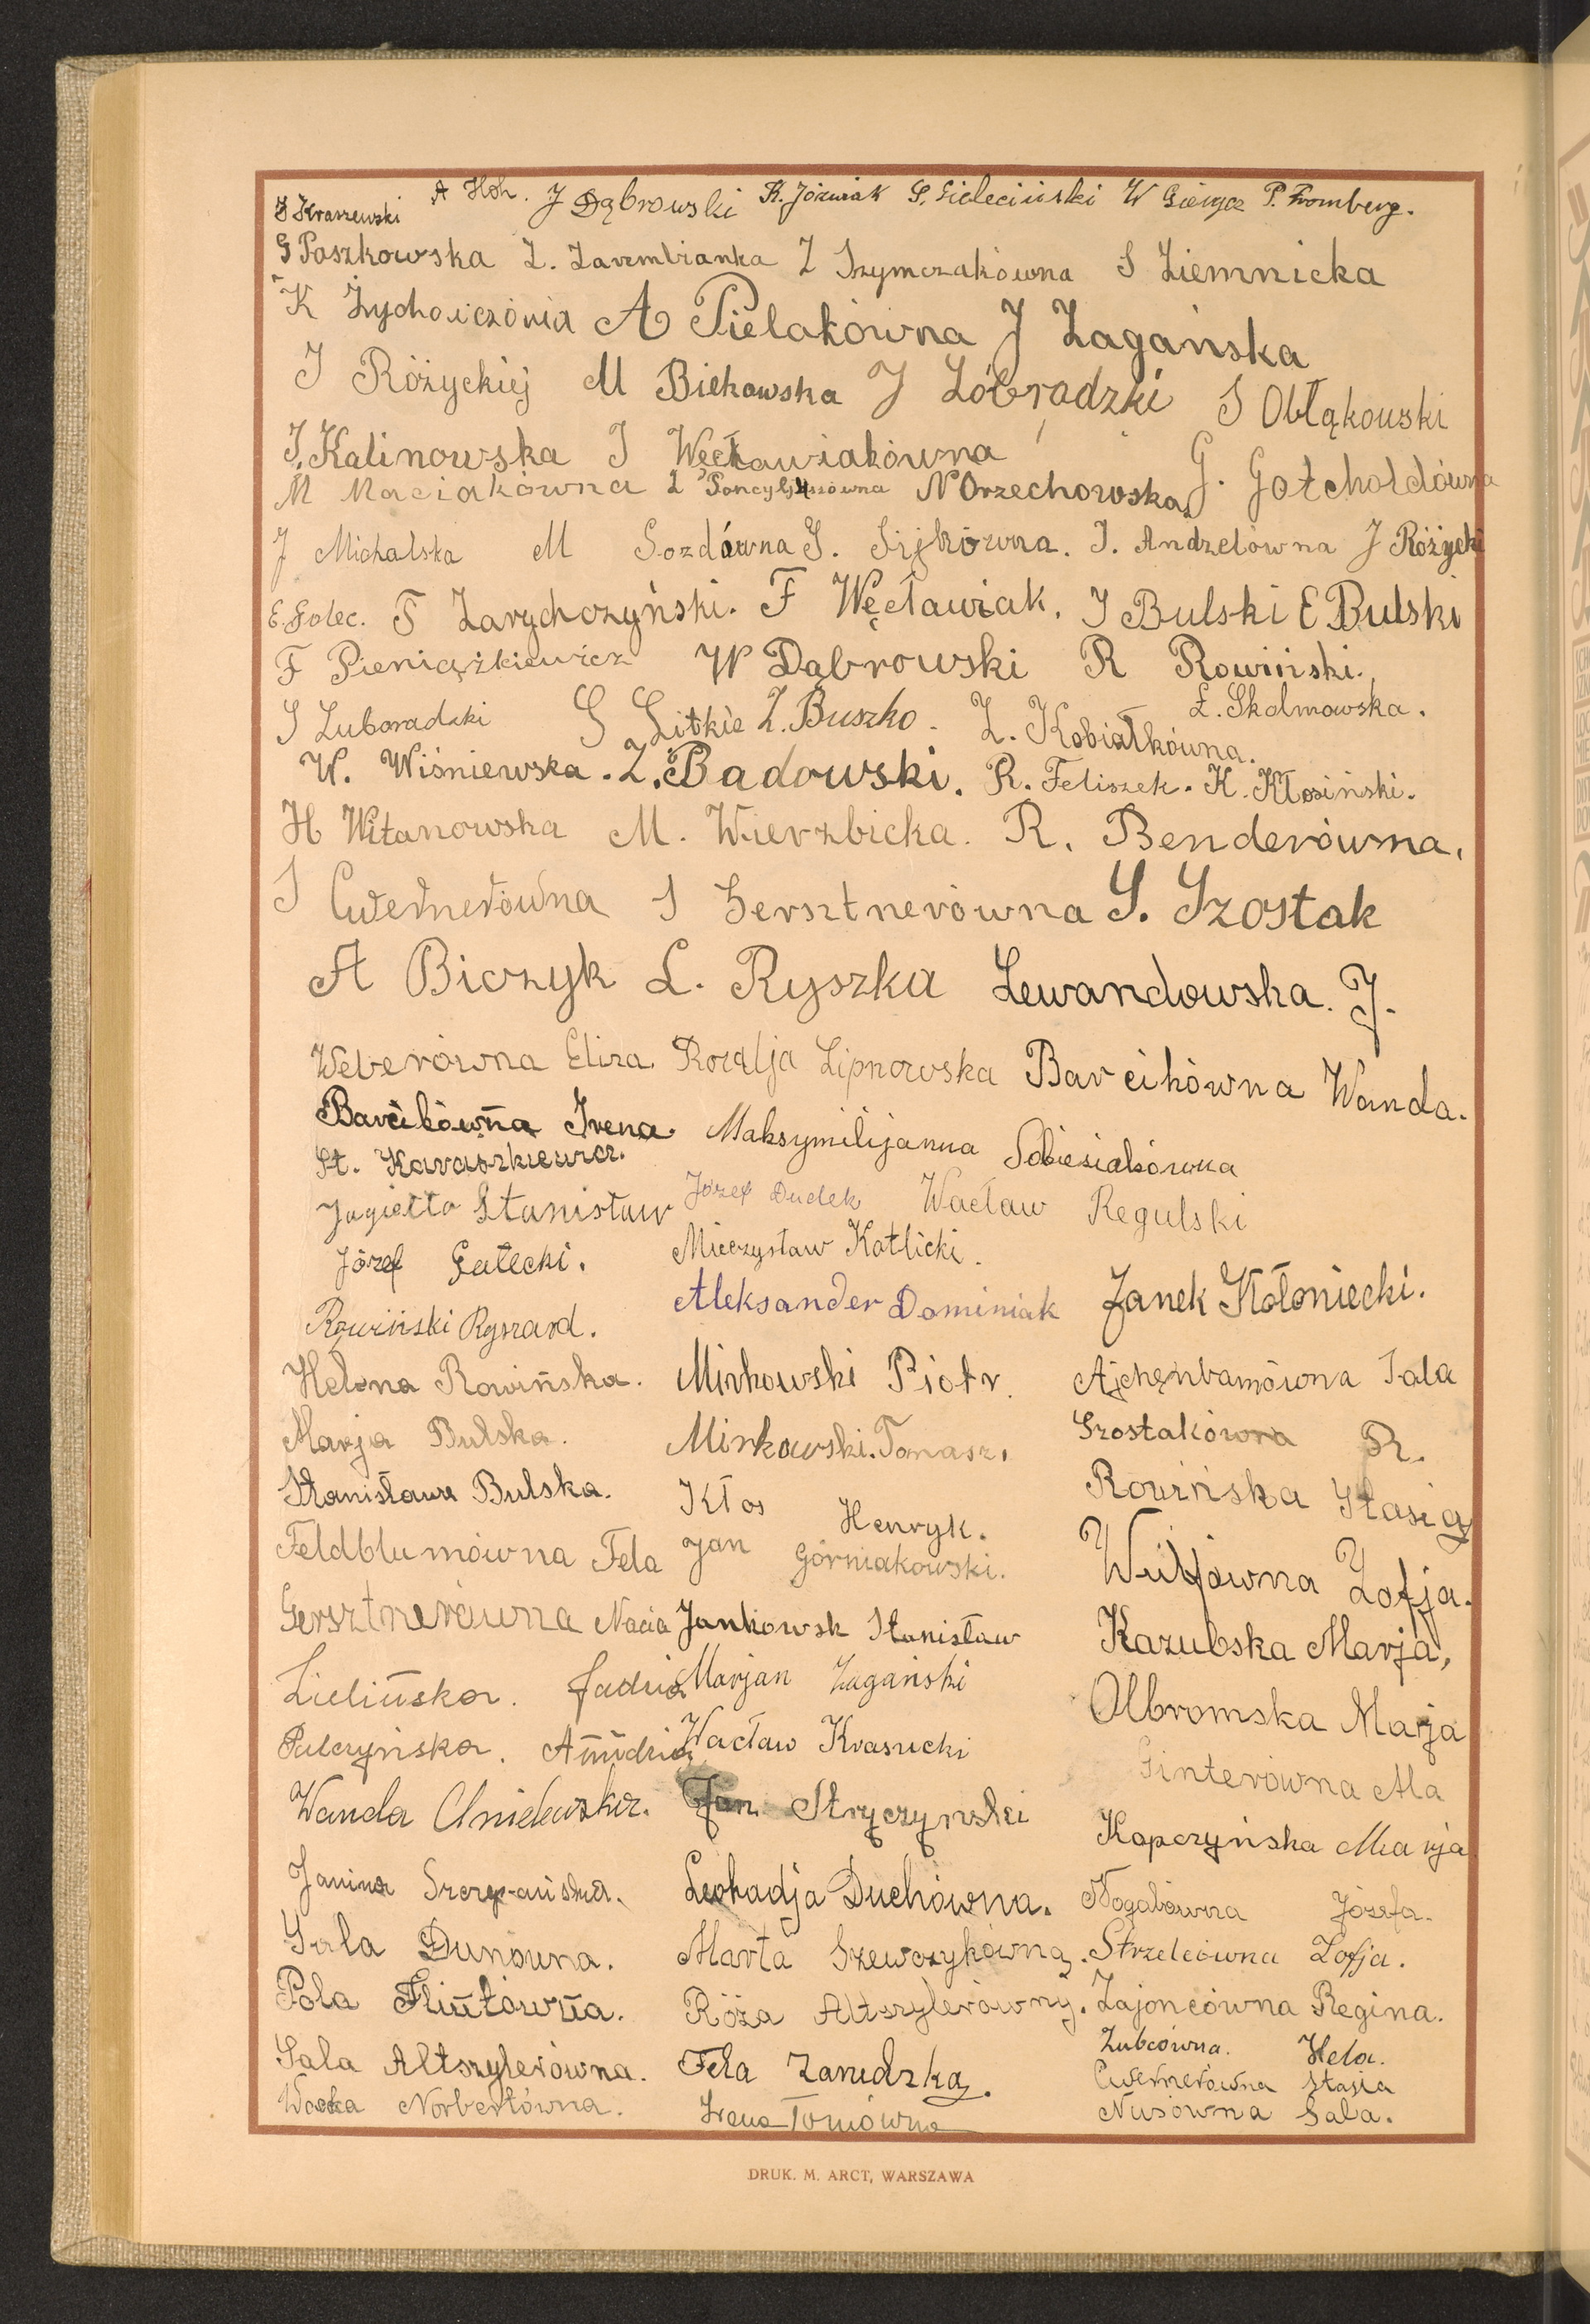 J Kraszewski A Hoh. J Dąbrowski K. Jóźwiak S. Sieleciński W Giewycz P. Fromberg.
G Paszkowska Z. Zarembianka Z Szymczakówna S Ziemnicka
K Żychowiczówna A Pielakówna J Żagańska
J Różyckiej M Biekowska J Lóbradzki S Obłąkowski
J. Kalinowska J Węcławiakówna
M Maciakówna N Orzechowska G. Gotcholdówna
J Michalska M Sozdówna S. Sijkówna. J. Andzelówna J Różycki
E. Golec. F Zarychczyński. F Węcławiak. J Bulski E Bulski
F Pieniążkiewicz W Dąbrowski R Rowiński.
S Luboradzki S Litkie Z. Buszko. Z. Kobiałkówna. Ł. Skalmowska.
W. Wiśniewska. Z. Badowski. R. Feliszek. K. Kłosiński.
H Witanowska M. Wierzbicka. R. Benderówna.
S Cwernerówna S Gersztnerówna S. Szostak
A Biczyk L. Ryszka Lewandowska. J.
Weberówna Eliza. Rozalja Lipnowska Barcikówna Wanda.
Barcikówna Irena. Maksymilijanna Sobiesiakówna
St. Karaszkiewicz.
Jagiełło Stanisław Józef Dudek Wacław Regulski
Józef Gałecki. Mieczysław Katlicki.
Rowiński Ryszard. Aleksander Dominiak Janek Kołoniecki.
Helena Rowińska. Mirkowski Piotr. Ajchenbamówna Sala
Marja Bulska. Mirkowski Tomasz. Szostakówna R.
Stanisława Bulska. Kłos Henryk. Rowińska Stasia
Feldblumówna Fela Jan Górniakowski. Wulfówna Zofja.
Gersztnerówna Nacia Jankowsk Stanisław Kazubska Marja,
Zielińska. Jadzia Marjan Żagański Olbromska Marja
Pulczyńska. Wacław Krasucki Ginterówna Ala
Wanda Chielewska. Jan Stryczyński Kapczyńska Marja
Janina Szczepańska. Leokadja Duchówna. Nogalówna Józefa.
Sala Dunówna. Marta Szewczykówna. Strzelcówna Zofja.
Pola Flintówna. Róża Altszylerówny. Zajoncówna Regina.
Sala Altszylerówna. Fela Zarudzka. Zubcówna. Hela.
Cwernerówna Stasia
Wacka Norbertówna. Irena Tomówna Nusówna Sala.
DRUK. M. ARCT, WARSZAWA